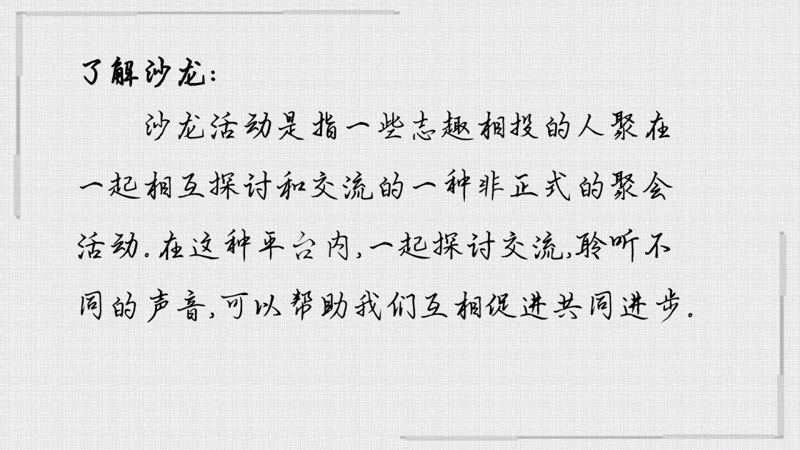 了解沙龙:
沙龙活动是指一些志趣相投的人聚在
一起相互探讨和交流的一种非正式的聚会
活动。在这种平台内,一起探讨交流,聆听不
同的声音,可以帮助我们互相促进共同进步。